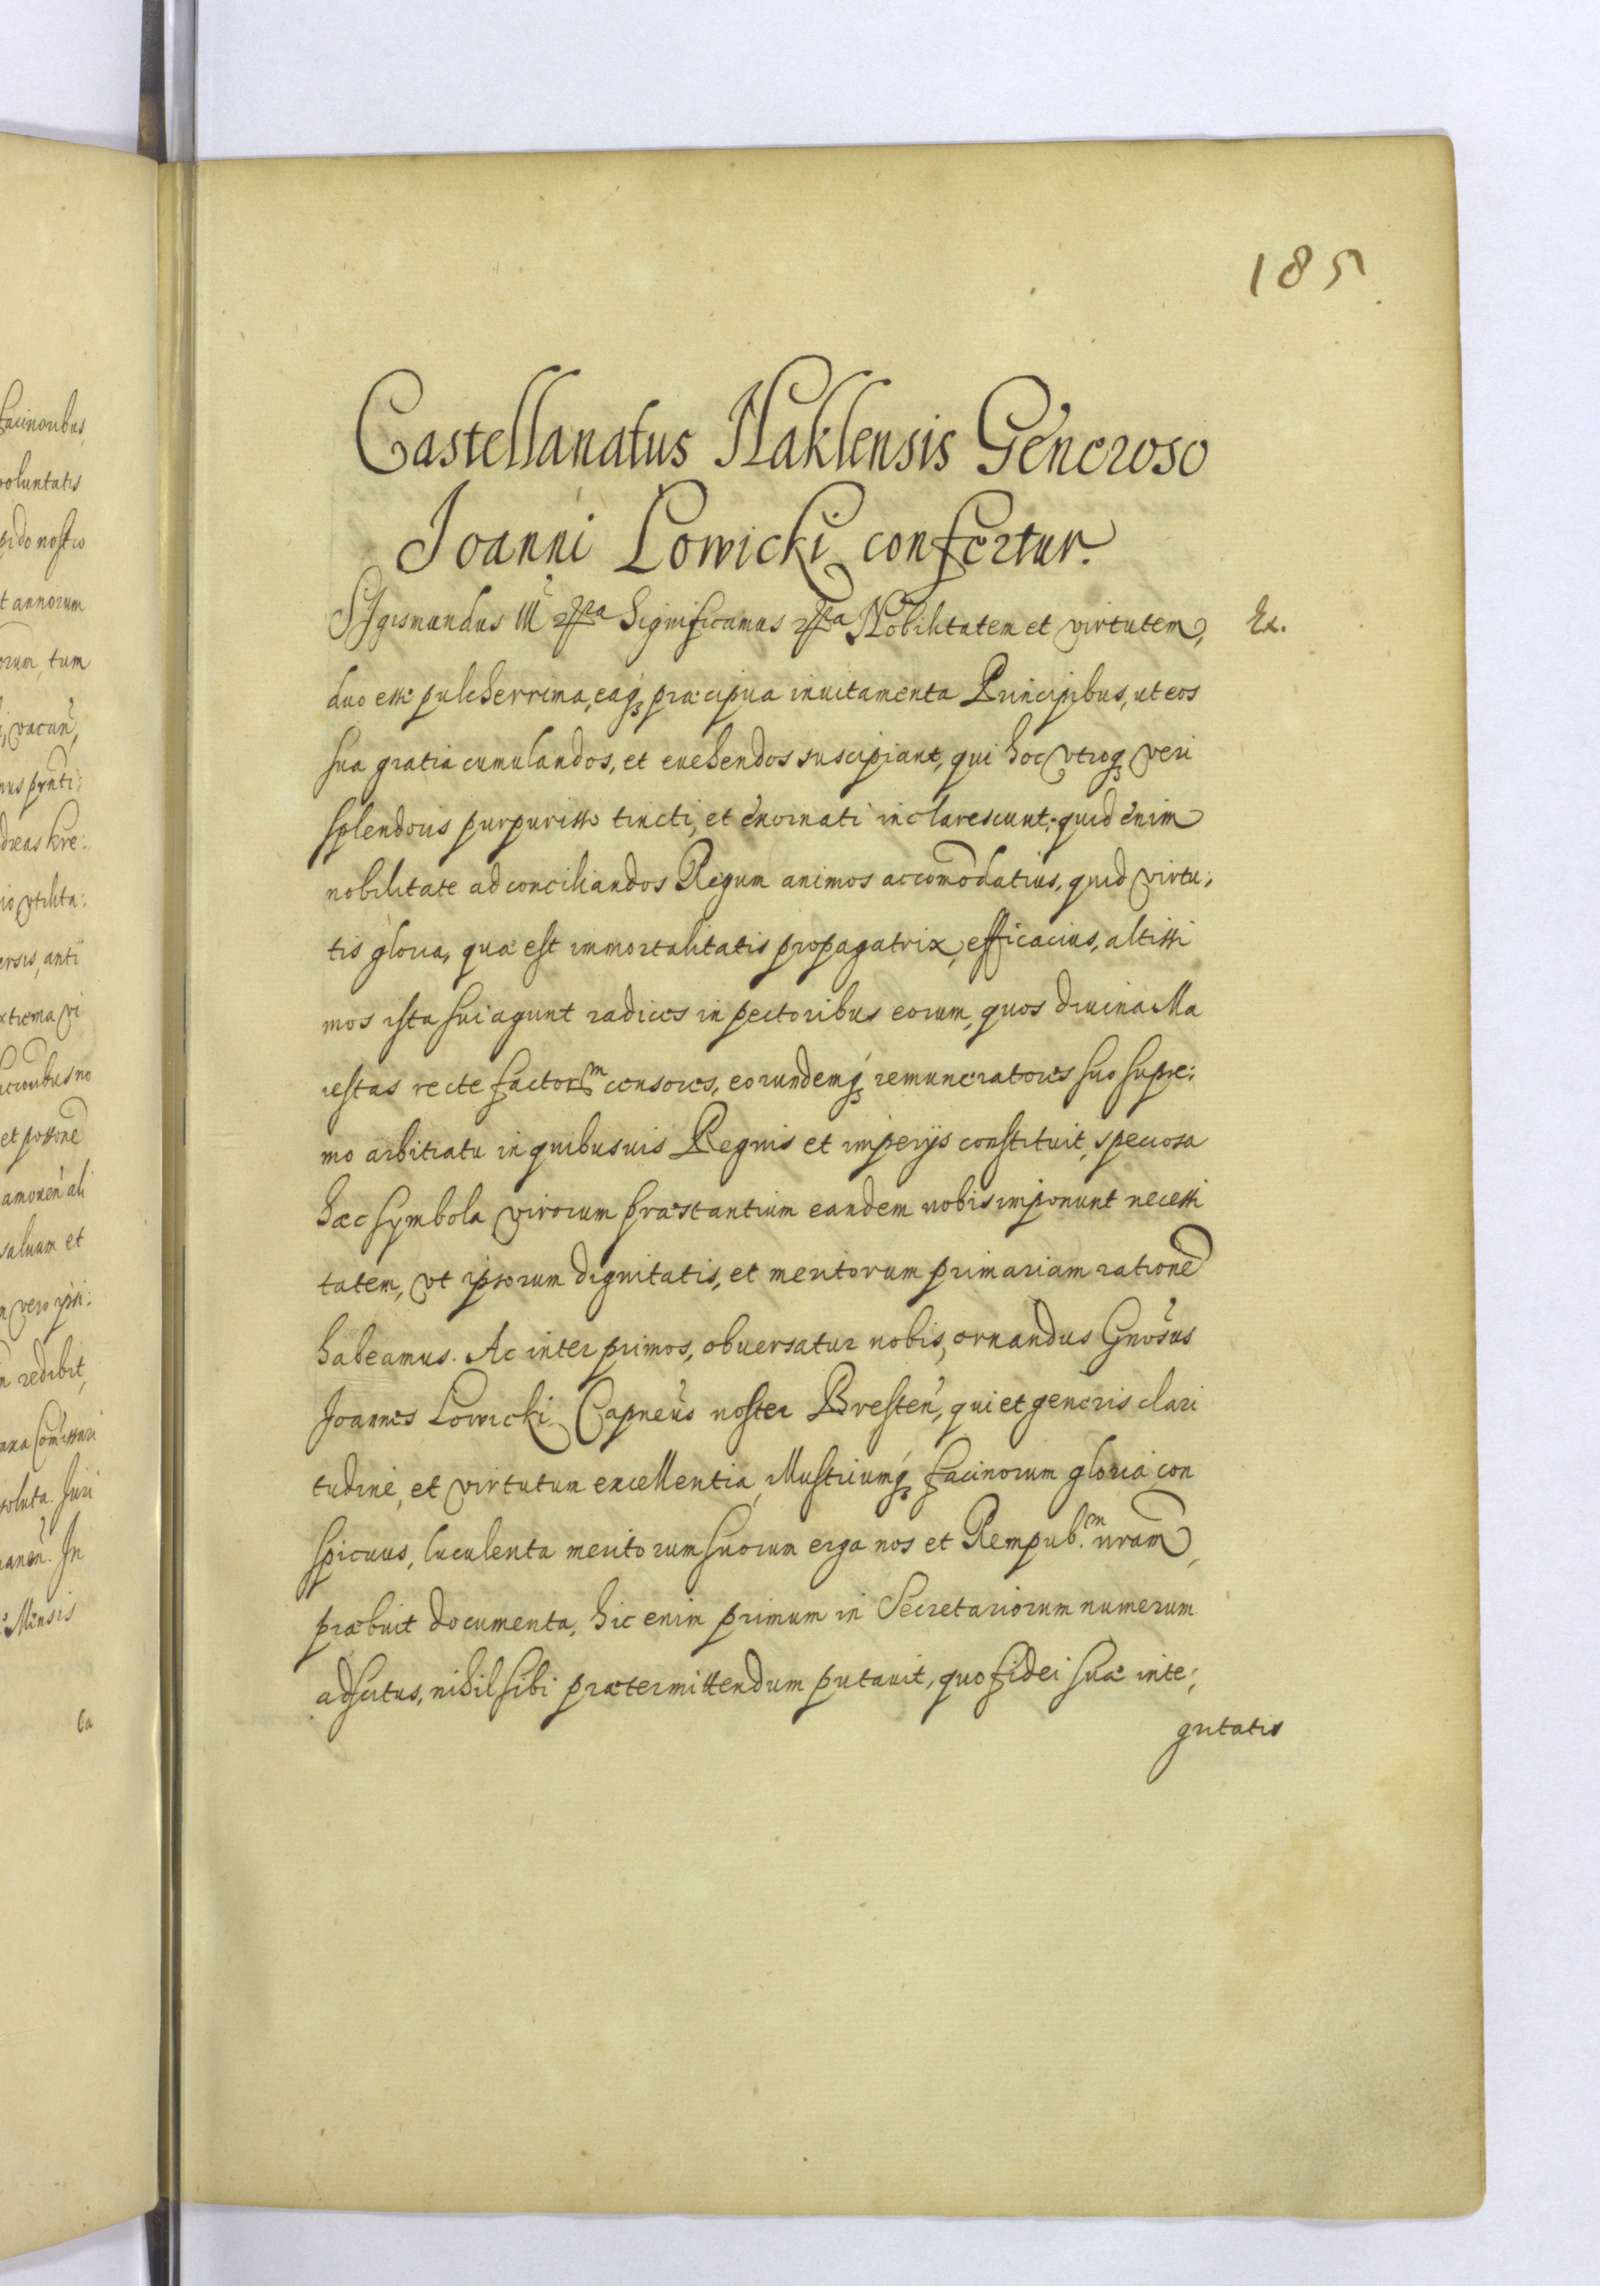 185
Castellanatus Naklensis Generoso
Joanni Lowicki confertur.
SIgismundus III Significamus Nobilitatem et virtutem, Ex.
duo esse pulcherrima, eaq; præcipua inuitamenta Principibus, ut eos
sua gratia cumulandos, et euehendos suscipiant, qui hoc vtroq; veri
splendoris purpurisso tincti, et exornati inclarescunt, quid enim
nobilitate ad conciliandos Regum animos accomodatius, quid virtu,
tis gloria, quæ est immortalitatis propagatrix, efficacius, altissi
mos ista sui agunt radices in pectoribus eorum, quos diuina Ma
iestas recte factorm censores, eorundemq; remuneratores suo supre,
mo arbitratu in quibusuis Regnis et imperijs constituit, speciosa
hæc symbola virorum præstantium eandem nobis imponunt necessi
tatem, vt ipsorum dignitatis, et meritorum primariam rationē
habeamus. Ac inter primos, obuersatur nobis, ornandus Gnosus
Joannes Lowicki Capneus noster Bresten, qui et generis clari
tudine, et virtutum excellentia, illustriumq; facinorum gloria con
spicuus, luculenta meritorum suorum erga nos et Rempub.cm nram,
præbuit documenta, hic enim primum in Secretariorum numerum
adscitus, nihil sibi prætermittendum putauit, quo fidei suæ inte,
gritatis
facinoribus,
voluntatis
nostro
t annorum
orum, tum
vacan,
dreas Kre:
ersis, anti
xtrema vi
et posson
amoren ali
saluam et
vero ipsi:
redibit,
soluta. Juri
In
Mensis
Ca